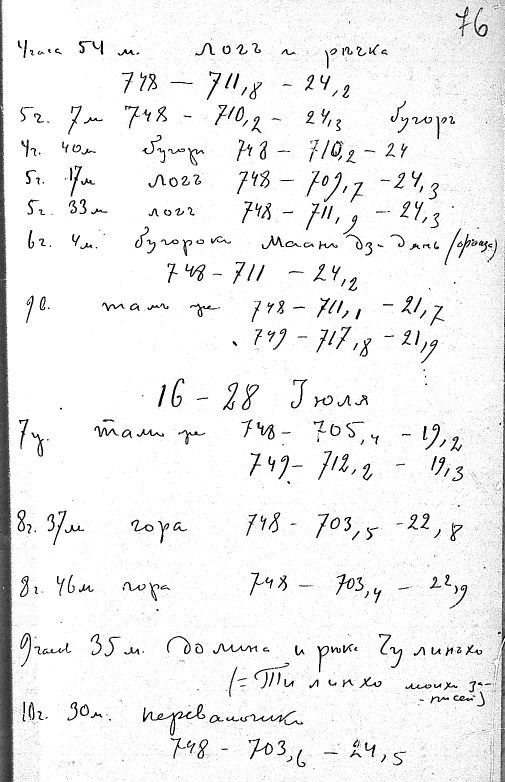 76
4 часа 54 м. логъ и рѣчка
748 — 711,8 - 24,2
5 г. 7 м 748 - 710,2 - 24,3 бугоръ
4 г. 40 м бугоръ 748 - 710,2 - 24
5 г. 17 м логъ 748 - 709,7 - 24,3
5 г. 33 м логъ 748 - 711,9 - 24,3
6 г. 4 м. бугорокъ дз—дянь
748 - 711 - 24,2
9 в. тамъ же 748 - 711,1 - 21,7
749 - 717,8 - 21,9
16 - 28 Іюля
7 у. тамъ же 748 - 705,4 - 19,2
749 - 712,2 - 19,3
8 г. 37 м гора 748 - 703,5 - 22,8
8 г. 46 м гора 748 - 703,4 - 22,9
9 часов 35 м. долина и рѣка Чулинхо
(= Тилинхо моихъ за-
-писей)
10 г. 30 м. перевальчикъ
748 - 703,6 - 24,5